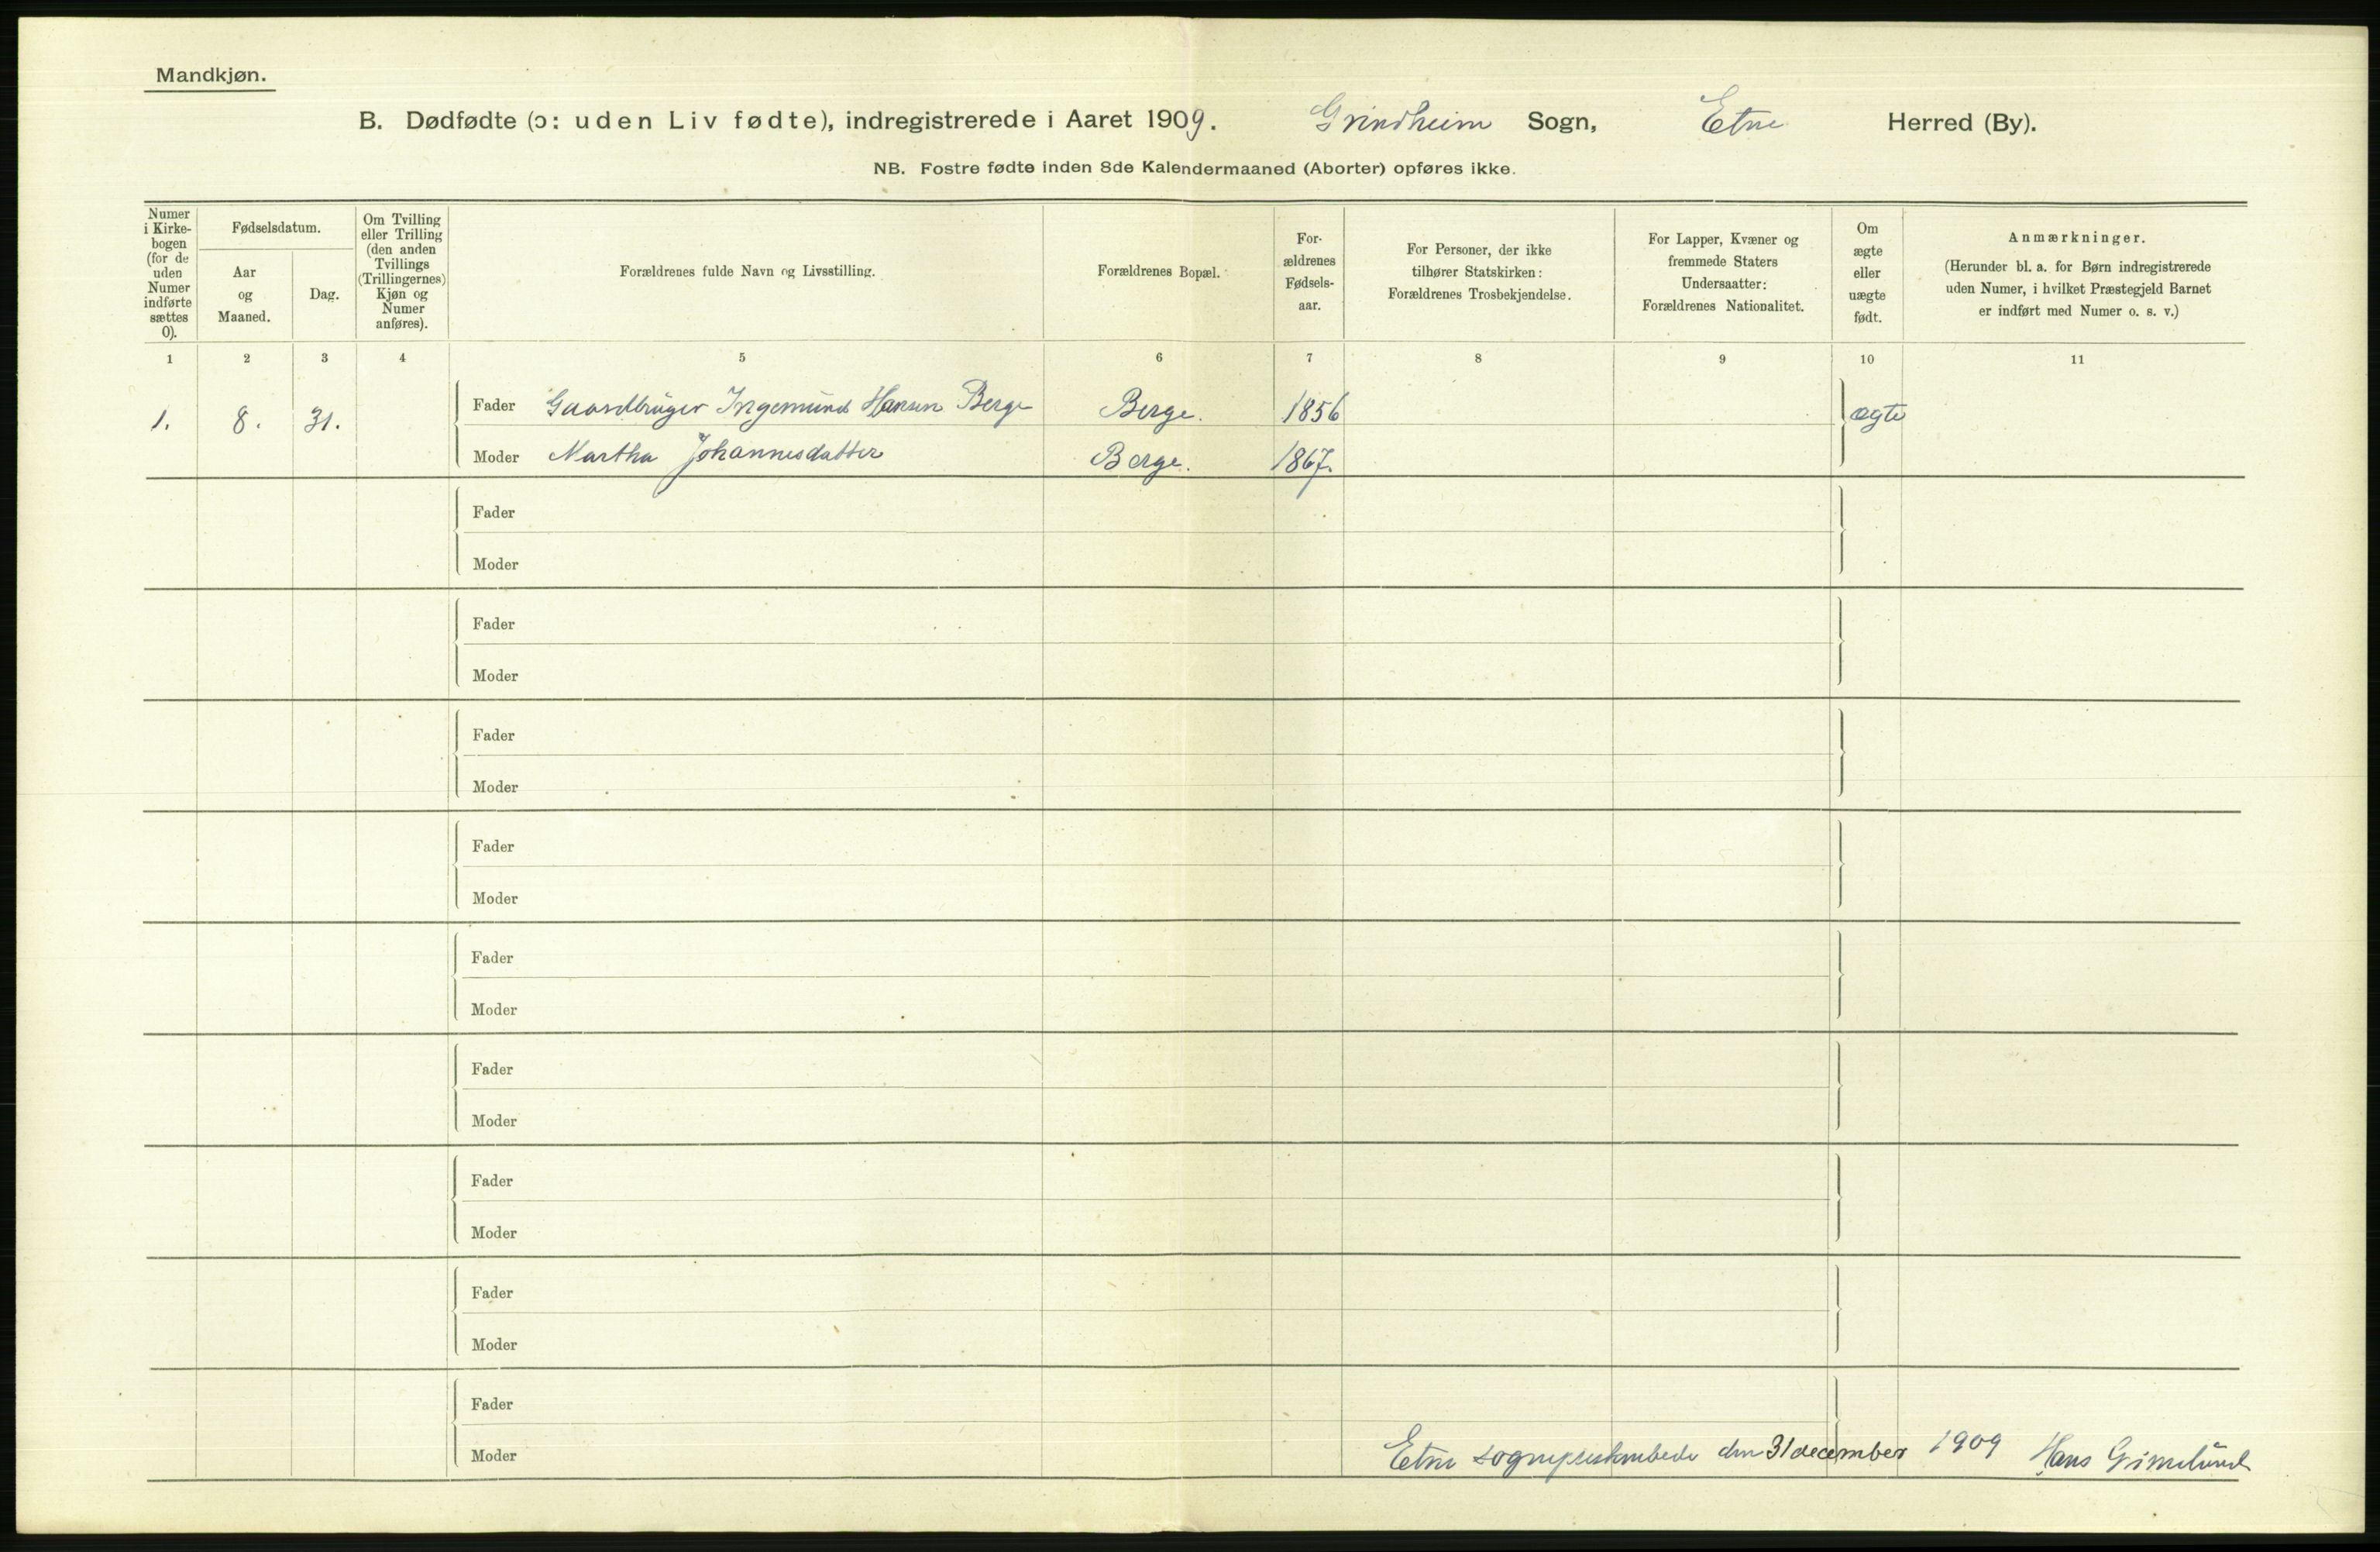 Mandkjøn.
B. Dødfødte (ɔ: uden Liv fødte), indregistrerede i Aaret 1909. Grindheim Sogn, Etne Herred (By).
NB. Fostre fødte inden 8de Kalendermaaned (Aborter) opføres ikke.
Numer i Kirke-bogen (for de uden Numer indførte sættes 0).
Fødselsdatum.
Aar og Maaned.
Dag.
Om Tvilling eller Trilling (den anden Tvillings (Trillingernes) Kjøn og Numer anføres).
Forældrenes fulde Navn og Livsstilling.
Forældrenes Bopæl.
For-ældrenes Fødsels-aar.
For Personer, der ikke tilhører Statskirken: Forældrenes Trosbekjendelse.
For Lapper, Kvæner og fremmede Staters Undersaatter: Forældrenes Nationalitet.
Om ægte eller uægte født.
Anmærkninger.
(Herunder bl. a. for Børn indregistrerede uden Numer, i hvilket Præstegjeld Barnet er indført med Numer o. s. v.)
1 2 3 4 5 6 7 8 9 10 11
1. 8. 31. Fader Gaardbruger Ingemund Hansen Berge Berge. 1856 ægte
Moder Martha Johannesdatter Berge. 1867.
Fader
Moder
Fader
Moder
Fader
Moder
Fader
Moder
Fader
Moder
Fader
Moder
Fader
Moder
Fader
Moder
Fader
Moder Etne sogneprestembede den 31 december 1909 Hans Grimelund